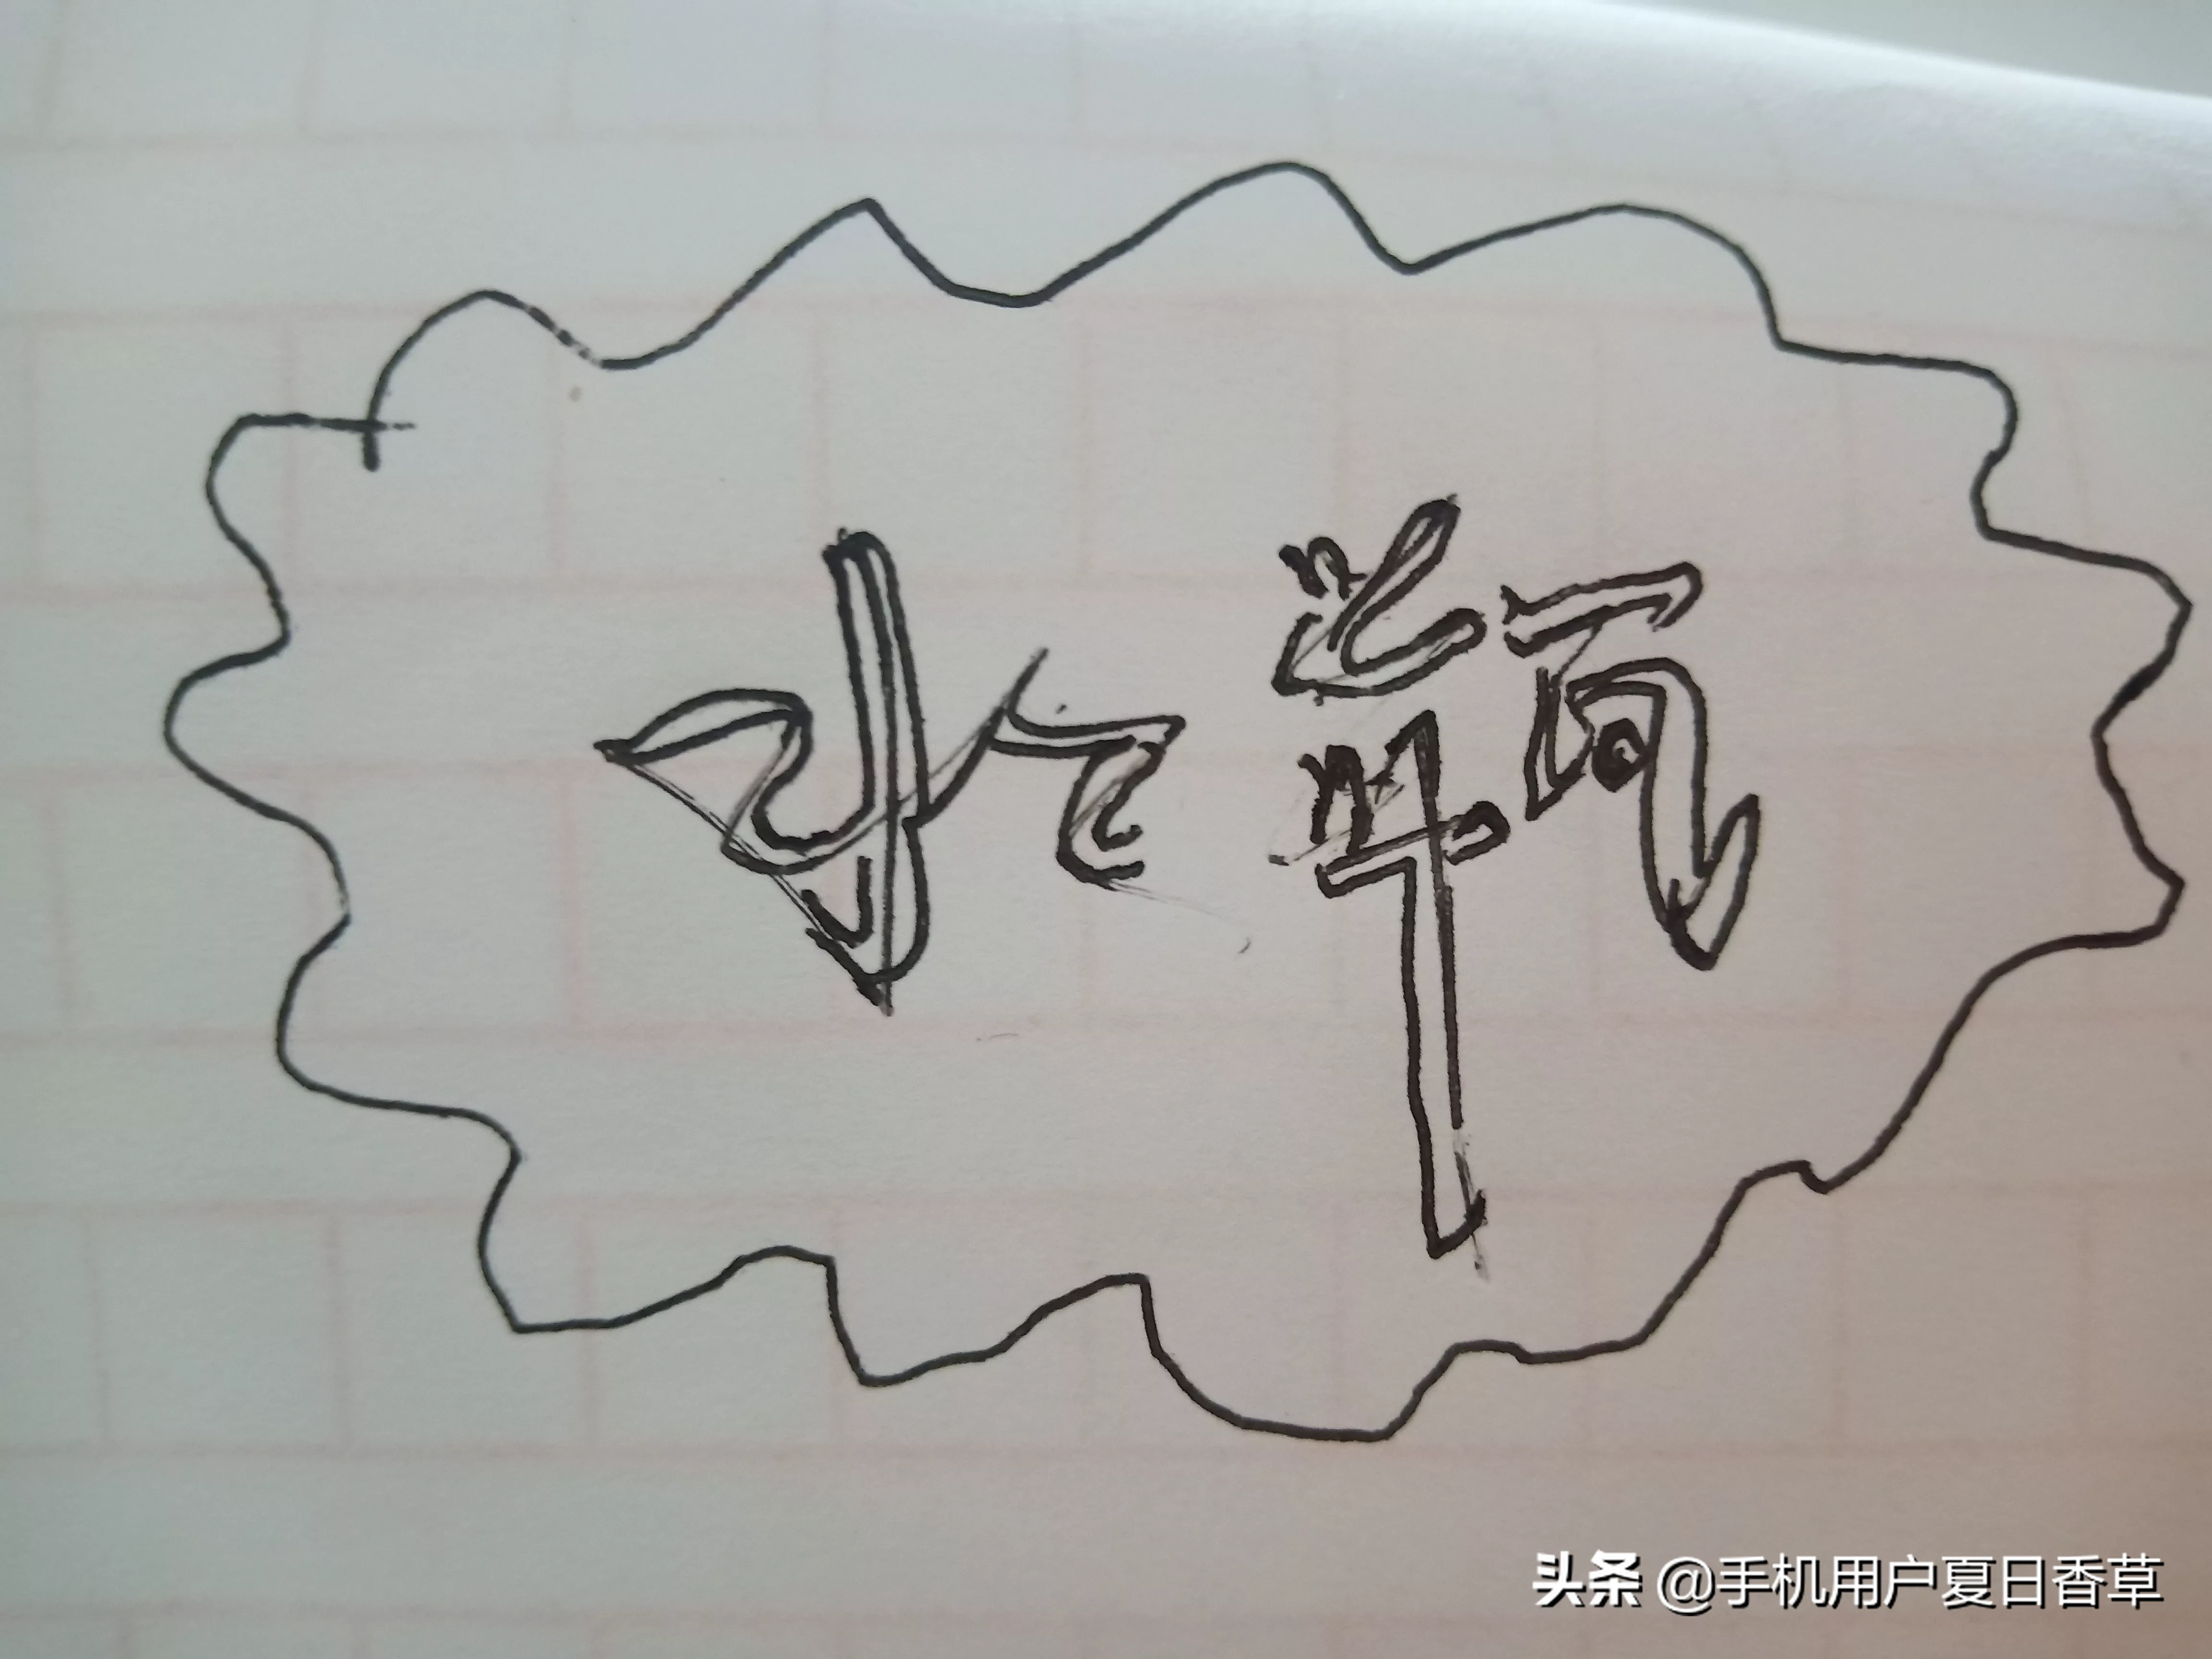 水瓶
头条 @手机用户夏日香草